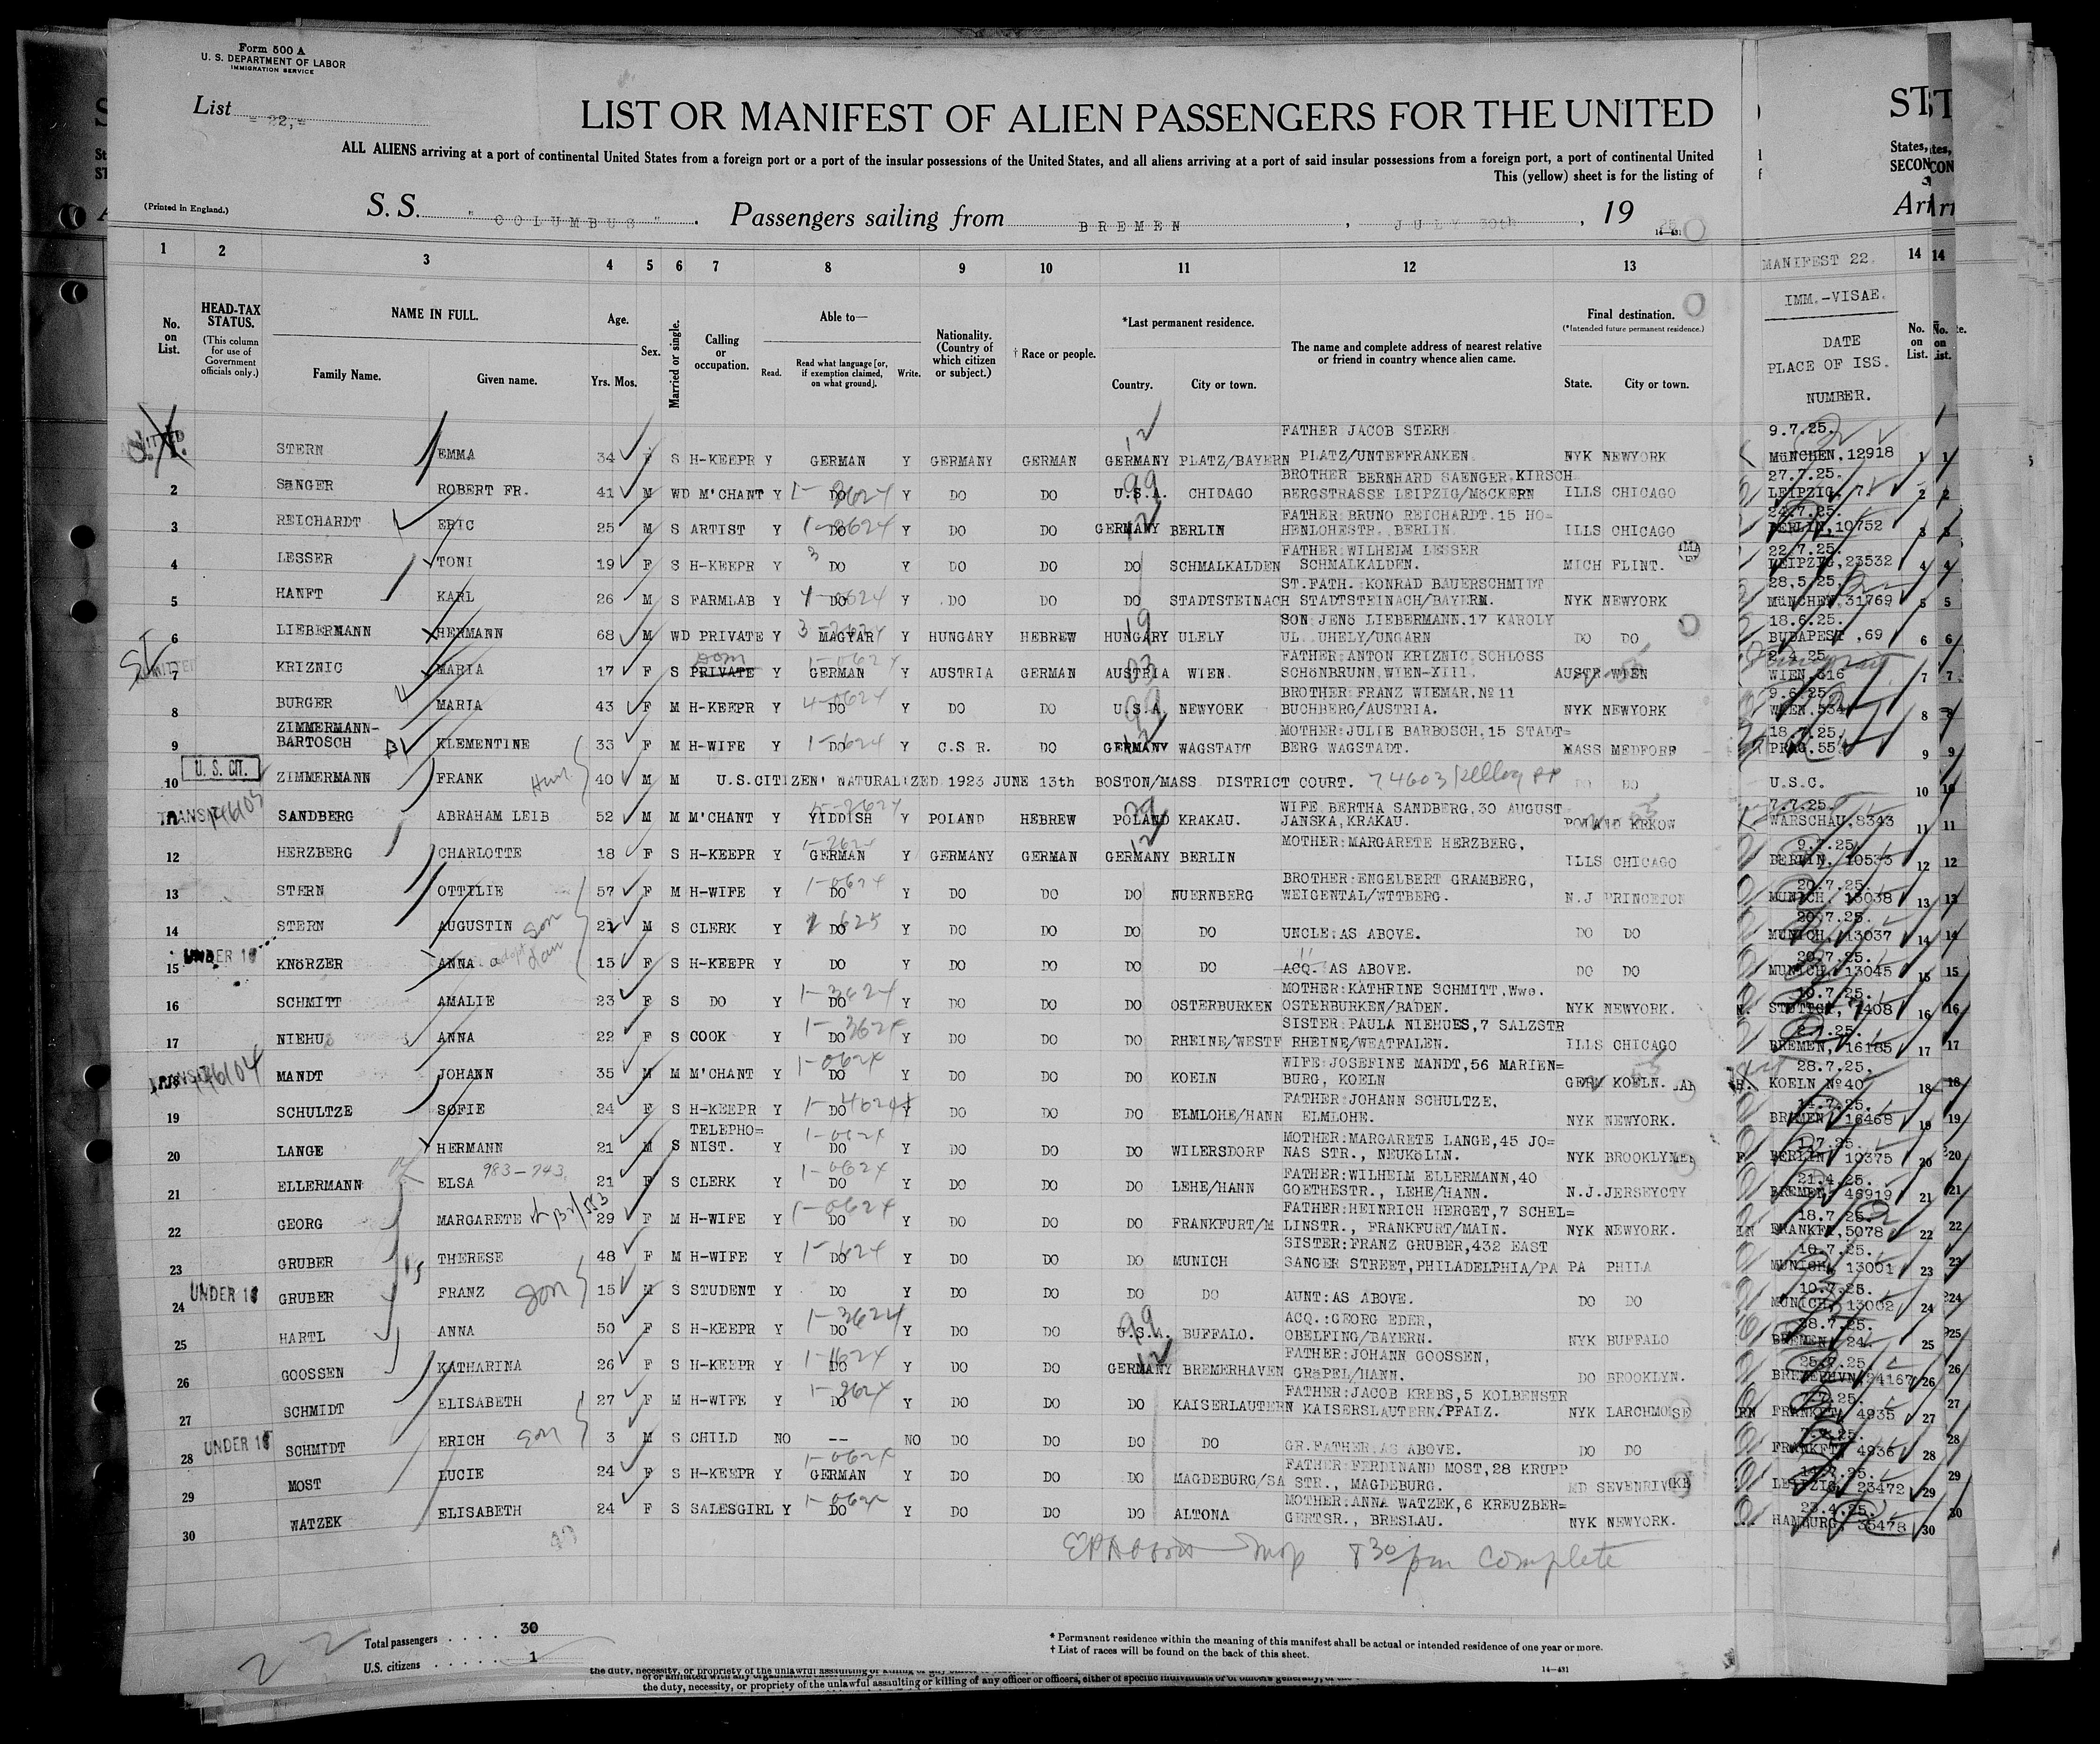 Form 500 A
U. S. DEPARTMENT OF LABOR
IMMIGRATION SERVICE
List = 22,=
LIST OR MANIFEST OF ALIEN PASSENGERS FOR THE UNITED
ST
ALL ALIENS arriving at a port of continental United States from a foreign port or a port of the insular possessions of the United States, and all aliens arriving at a port of said insular possessions from a foreign port, a port of continental United
States,
This (yellow) sheet is for the listing of
SECON
(Printed in England.)
S. S. " COLUMBUS " . Passengers sailing from BREMEN , JULY 30th , 19 25
Arr
14—431
1 2 3 4 5 6 7 8 9 10 11 12 13 MANIFEST 22. 14 14
No. on List.
HEAD-TAX STATUS. (This column for use of Government officials only.)
NAME IN FULL.
Family Name. Given name.
Age.
Yrs. Mos.
Sex.
Married or single.
Calling or occupation.
Able to—
Read. Read what language [or, if exemption claimed, on what ground]. Write.
Nationality. (Country of which citizen or subject.)
† Race or people.
*Last permanent residence.
Country. City or town.
The name and complete address of nearest relative or friend in country whence alien came.
Final destination.
(*Intended future permanent residence.)
State. City or town.
IMM.-VISAE.
DATE
PLACE OF ISS.
NUMBER.
No. on List.
FATHER JACOB STERN 9.7.25.
STERN EMMA 34 F S H-KEEPR Y GERMAN Y GERMANY GERMAN GERMANY PLATZ/BAYERN PLATZ/UNTEFFRANKEN NYK NEWYORK MüNCHEN,12918 1 1
BROTHER BERNHARD SAENGER,KIRSCH 27.7.25.
2 SäNGER ROBERT FR. 41 M WD M'CHANT Y DO Y DO DO U.S.A. CHIDAGO BERGSTRASSE LEIPZIG/MöCKERN ILLS CHICAGO LEIPZIG, 7. 2 2
FATHER:BRUNO REICHARDT.15 HO= 24.7.25.
3 REICHARDT ERIC 25 M S ARTIST Y DO Y DO DO GERMANY BERLIN HENLOHESTR. BERLIN. ILLS CHICAGO BERLIN,10752 3 3
FATHER:WILHELM LESSER 22.7.25.
4 LESSER TONI 19 F S H-KEEPR Y DO Y DO DO DO SCHMALKALDEN SCHMALKALDEN. MICH FLINT. LEIPZIG,23532 4 4
ST.FATH. KONRAD BAUERSCHMIDT 28.5.25.
5 HANFT KARL 26 M S FARMLAB Y DO Y DO DO DO STADTSTEINACH STADTSTEINACH/BAYERN. NYK NEWYORK MüNCHEN,31769 5 5
SON:JENö LIEBERMANN.17 KAROLY 18.6.25.
6 LIEBERMANN HERMANN 68 M WD PRIVATE Y MAGYAR Y HUNGARY HEBREW HUNGARY ULELY UL. UHELY/UNGARN DO DO BUDAPEST ,69 6 6
FATHER:ANTON KRIZNIC,SCHLOSS 2.4.25.
7 KRIZNIC MARIA 17 F S PRIVATE Dom Y GERMAN Y AUSTRIA GERMAN AUSTRIA WIEN. SCHöNBRUNN,WIEN-XIII. AUSTR WIEN WIEN,316 7 7
BROTHER:FRANZ WIEMAR,№11 9.6.25.
8 BURGER MARIA 43 F M H-KEEPR Y DO Y DO DO U.S.A. NEWYORK BUCHBERG/AUSTRIA. NYK NEWYORK WIEN,534 8 8
ZIMMERMANN- MOTHER:JULIE BARBOSCH,15 STADT= 18.7.25.
9 BARTOSCH KLEMENTINE 33 F M H-WIFE Y DO Y C.S.R. DO GERMANY WAGSTADT BERG WAGSTADT. MASS MEDFORF PRAG.55 9 9
U. S. CIT.
10 ZIMMERMANN FRANK 40 M M U.S.CITIZEN' NATURALIZED 1923 JUNE 13th BOSTON/MASS DISTRICT COURT. 74603 DO DO U.S.C. 10 10
WIFE BERTHA SANDBERG,30 AUGUST 7.7.25.
TRANSIT SANDBERG ABRAHAM LEIB 52 M M M'CHANT Y YIDDISH Y POLAND HEBREW POLAND KRAKAU. JANSKA,KRAKAU. POLAND KRKOW WARSCHAU,8343 11 11
MOTHER:MARGARETE HERZBERG, 9.7.25.
12 HERZBERG CHARLOTTE 18 F S H-KEEPR Y GERMAN Y GERMANY GERMAN GERMANY BERLIN ILLS CHICAGO BERLIN, 10533 12 12
BROTHER:ENGELBERT GRAMBERG, 20.7.25.
13 STERN OTTILIE 57 F M H-WIFE Y DO Y DO DO DO NUERNBERG WEIGENTAL/WTTBERG. N.J PRINCETON MUNICH, 13038 13 13
20.7.25.
14 STERN AUGUSTIN son 21 M S CLERK Y DO Y DO DO DO DO UNCLE:AS ABOVE. DO DO MUNICH, 13037 14 14
20.7.25.
UNDER 16 15 KNöRZER ANNA 15 F S H-KEEPR Y DO Y DO DO DO DO ACQ. AS ABOVE. DO DO MUNICH, 13045 15 15
MOTHER:KATHRINE SCHMITT,Wwe. 10.7.25.
16 SCHMITT AMALIE 23 F S DO Y DO Y DO DO DO OSTERBURKEN OSTERBURKEN/BADEN. NYK NEWYORK. STUTTGT, 7408 16 16
SISTER:PAULA NIEHUES,7 SALZSTR
17 NIEHUS ANNA 22 F S COOK Y DO Y DO DO DO RHEINE/WESTF RHEINE/WEATFALEN. ILLS CHICAGO BREMEN, 16185 17 17
WIFE:JOSEFINE MANDT,56 MARIEN= 28.7.25.
TRANSIT 146104 MANDT JOHANN 35 M M M'CHANT Y DO Y DO DO DO KOELN BURG, KOELN GERM KOELN. KOELN №40 18 18
FATHER:JOHANN SCHULTZE, 14.7.25.
19 SCHULTZE SOFIE 24 F S H-KEEPR Y DO Y DO DO DO ELMLOHE/HANN ELMLOHE. NYK NEWYORK. BREMEN, 16468 19 19
TELEPHO= MOTHER:MARGARETE LANGE,45 JO= 1.7.25.
20 LANGE HERMANN 21 M S NIST. Y DO Y DO DO DO WILERSDORF NAS STR., NEUKöLLN. NYK BROOKLYN BERLIN, 10375 20 20
FATHER:WILHELM ELLERMANN,40 21.4.25.
21 ELLERMANN ELSA 983-743 21 F S CLERK Y DO Y DO DO DO LEHE/HANN GOETHESTR., LEHE/HANN. N.J.JERSEYCTY BREMEN, 46919 21 21
FATHER:HEINRICH HERGET,7 SCHEL= 18.7.25.
22 GEORG MARGARETE 29 F M H-WIFE Y DO Y DO DO DO FRANKFURT/M LINSTR., FRANKFURT/MAIN. NYK NEWYORK. FRANKFT,5078 22 22
SISTER:FRANZ GRUBER,432 EAST 10.7.25.
23 GRUBER THERESE 48 F M H-WIFE Y DO Y DO DO DO MUNICH SANGER STREET,PHILADELPHIA/PA PA PHILA MUNICH, 13001 23 23
10.7.25.
UNDER 16 24 GRUBER FRANZ son 15 M S STUDENT Y DO Y DO DO DO DO AUNT:AS ABOVE. DO DO MUNICH, 13002 24 24
ACQ.:GEORG EDER, 28.7.25.
25 HARTL ANNA 50 F S H-KEEPR Y DO Y DO DO U.S.A. BUFFALO. OBELFING/BAYERN. NYK BUFFALO BREMEN, 24. 25 25
FATHER:JOHANN GOOSSEN, 25.7.25.
26 GOOSSEN KATHARINA 26 F S H-KEEPR Y DO Y DO DO GERMANY BREMERHAVEN GRäPEL/HANN. DO BROOKLYN. BREMERHVN,24167 26 26
FATHER:JACOB KREBS,5 KOLBENSTR
27 SCHMIDT ELISABETH 27 F M H-WIFE Y DO Y DO DO DO KAISERLAUTERN KAISERSLAUTERN.PFALZ. NYK LARCHMO FRANKFT, 4935 27 27
7.7.25.
UNDER 16 28 SCHMIDT ERICH son 3 M S CHILD NO -- NO DO DO DO DO GR.FATHER:AS ABOVE. DO DO FRANKFT, 4936 28 28
FATHER:FERDINAND MOST,28 KRUPP 14.7.25.
29 MOST LUCIE 24 F S H-KEEPR Y GERMAN Y DO DO DO MAGDEBURG/SA STR., MAGDEBURG. MD SEVENRIV LEIPZIG, 23472 29 29
MOTHER:ANNA WATZEK,6 KREUZBER= 23.4.25.
30 WATZEK ELISABETH 24 F S SALESGIRL Y DO Y DO DO DO ALTONA GERTSR., BRESLAU. NYK NEWYORK. HAMBURG, 35478 30 30
830 pm complete
22
Total passengers . . . . . 30
U.S. citizens . . . . . . 1
* Permanent residence within the meaning of this manifest shall be actual or intended residence of one year or more.
† List of races will be found on the back of this sheet.
14—431
the duty, necessity, or propriety of the unlawful assaulting or killing of any officer or officers, either of specific individuals or of officers generally, of the